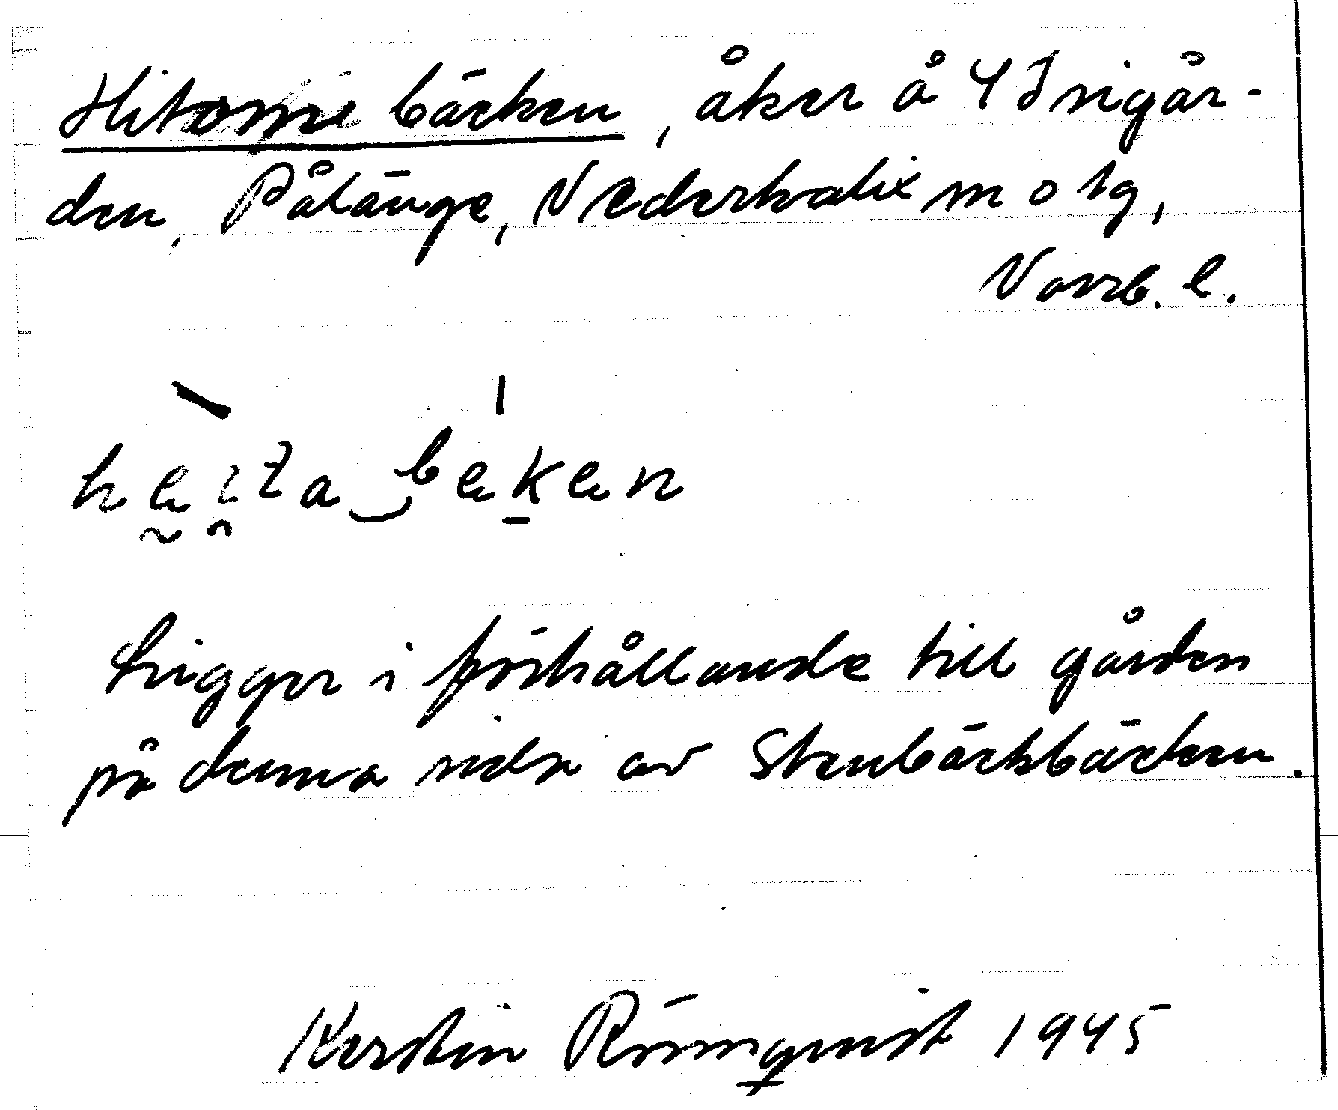 Hitom bäcken, åker å 4 Nigår-
den, Pålänge, Nederkalix sn o tg,
Norrb. l.
haita beken
Ligger i förhållande till gården
på denna sida av Stenbäckbäcken.
Kerstin Rönnquist 1945